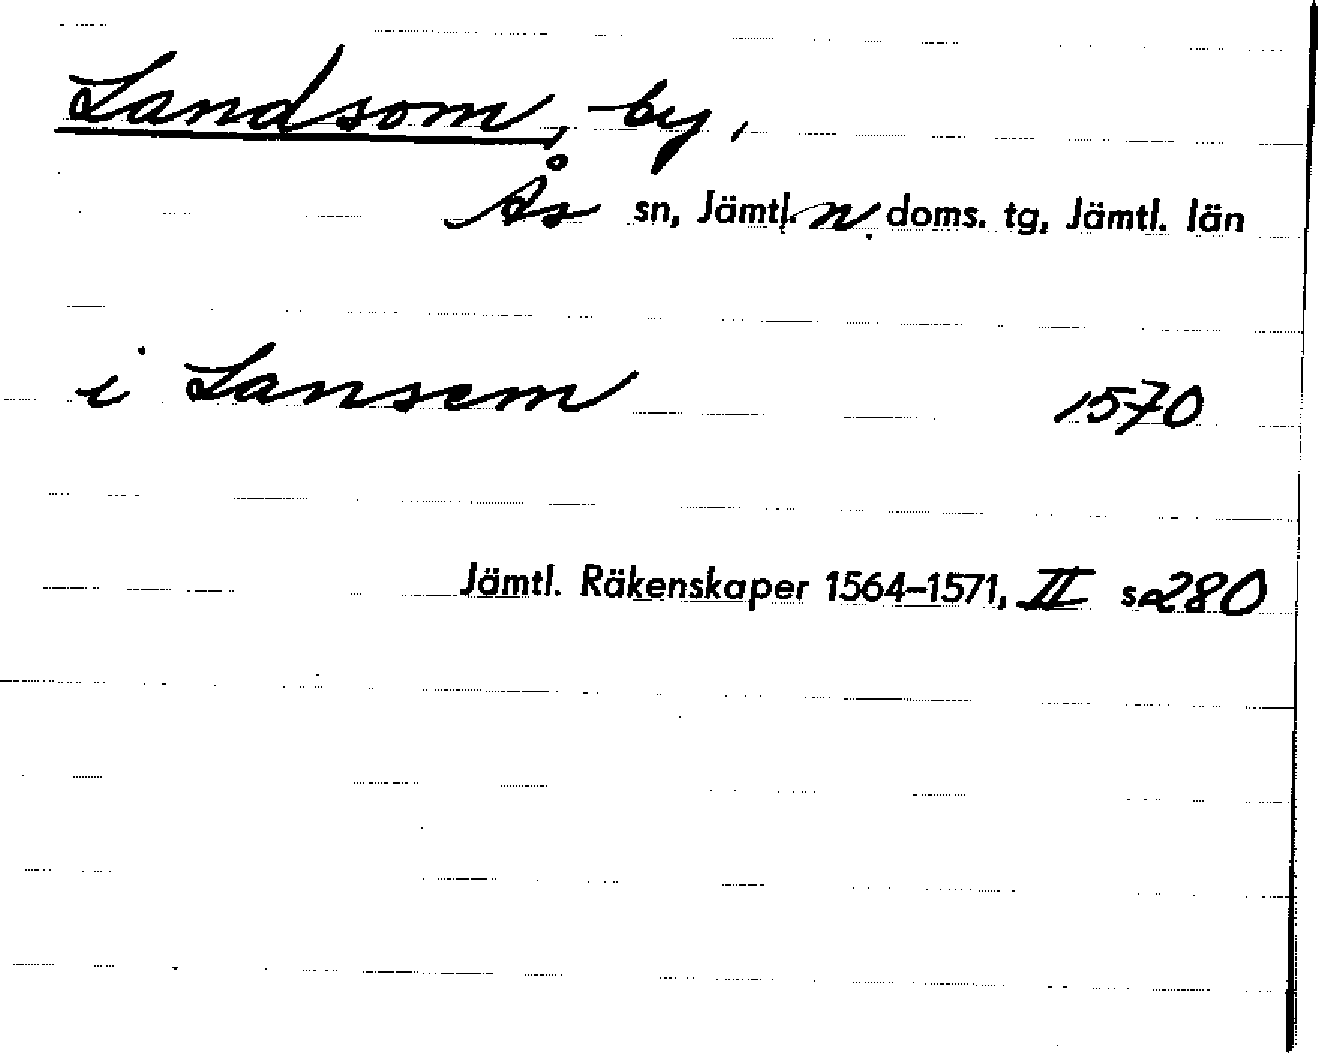 Landsom, by,
Ås sn, Jämtl. n. doms. tg, Jämtl. län
i Lansem 1570
Jämtl. Räkenskaper 1564–1571, II s 280